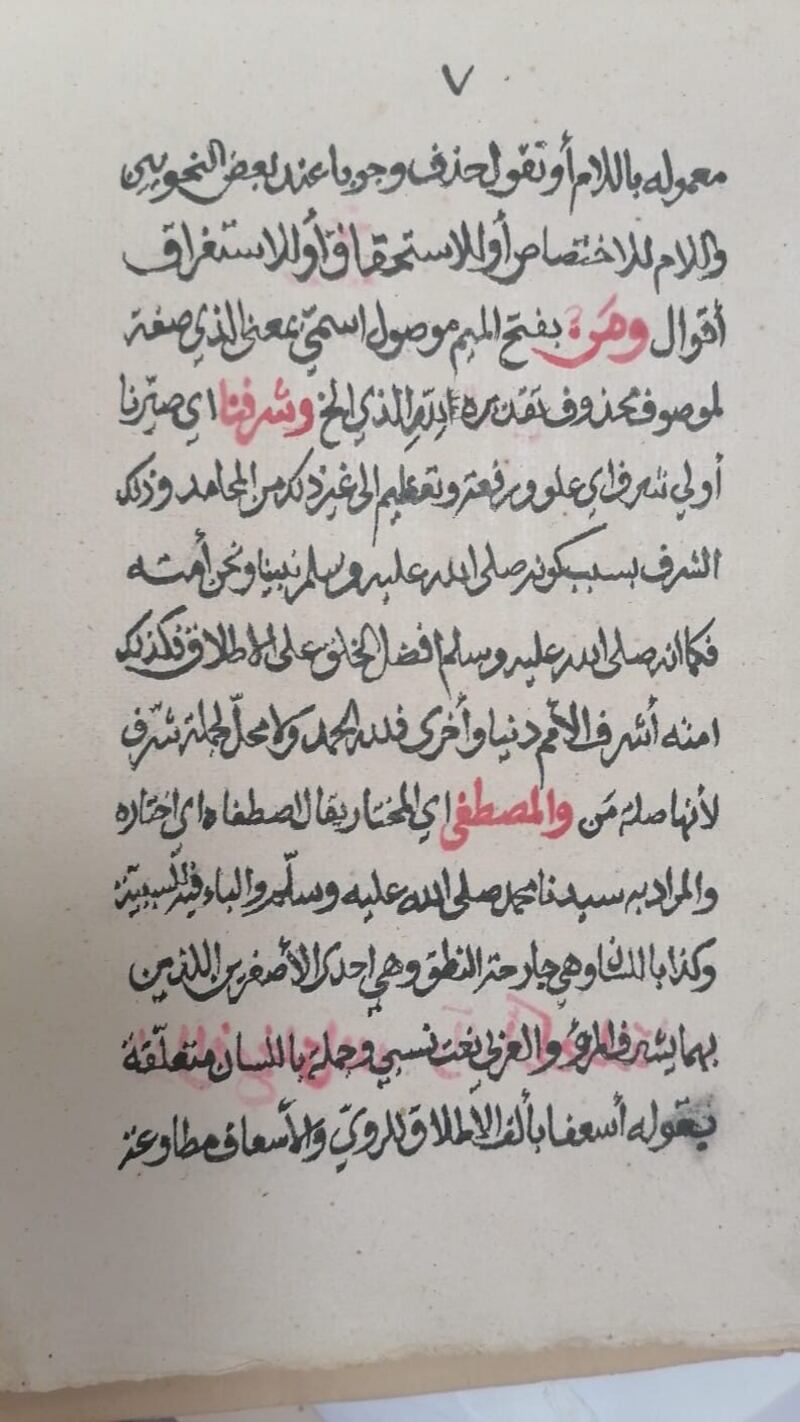 ٧
معموله باللام أو تقول حذف وجوبا عند بعض النحويين
واللام للاختصاص أو للاستحقاق أو للاستغراق
أقوال ومَن بفتح الميم موصول اسميّ بمعنى الذي صفة
لموصوف محذوف تقديره الله الذي الخ وشرفنا اي صيّرنا
أولي شرف اي علو ورفعة وتعظيم الى غير ذلك من المحامد وذلك
الشرف بسبب كونه صلى الله عليه وسلم نبينا ونحن أمته
فكما انه صلى الله عليه وسلم افضل الخلق على الاطلاق فكذلك
امته أشرف الأمم دنيا وأخرى فلله الحمد ولا محلّ لجملة شرّف
لأنها صلة مَن والمصطفى اي المختار يقال اصطفاه اي اختاره
والمراد به سيدنا محمد صلى الله عليه وسلّم والباء فيه للسببية
وكذا باللسان وهي جارحة النطق وهي احدى الأصغرين اللذين
بهما يشرف المرؤ والعربي نعت نسبي وجملة باللسان متعلّقة
بقوله أسعفا بألف الاطلاق للرويّ والأسعاف مطاوعة